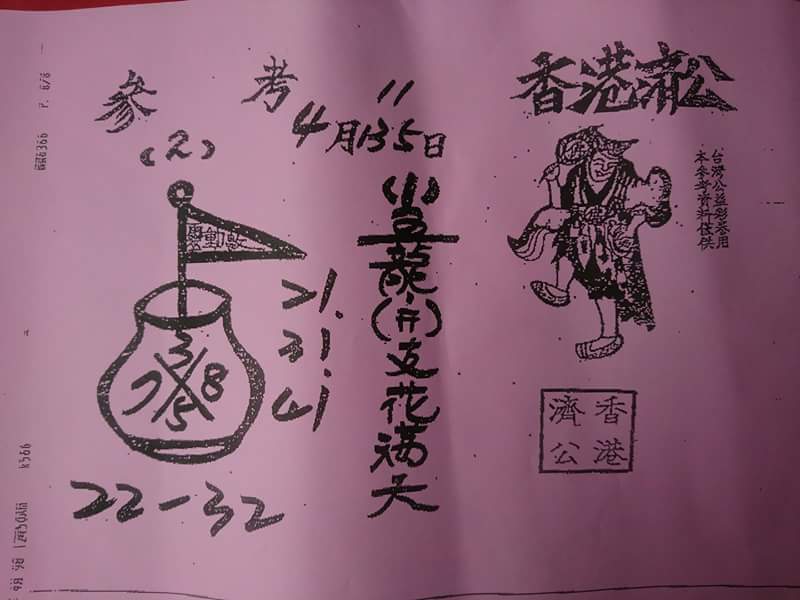 香港濟公
台灣公益彩卷用
本參考資料僅供
香港
濟公
參考
11
4月135日
(1)
龍(开)支花滿天
(2)
21.
31.
41
3
7 8
5
22-32